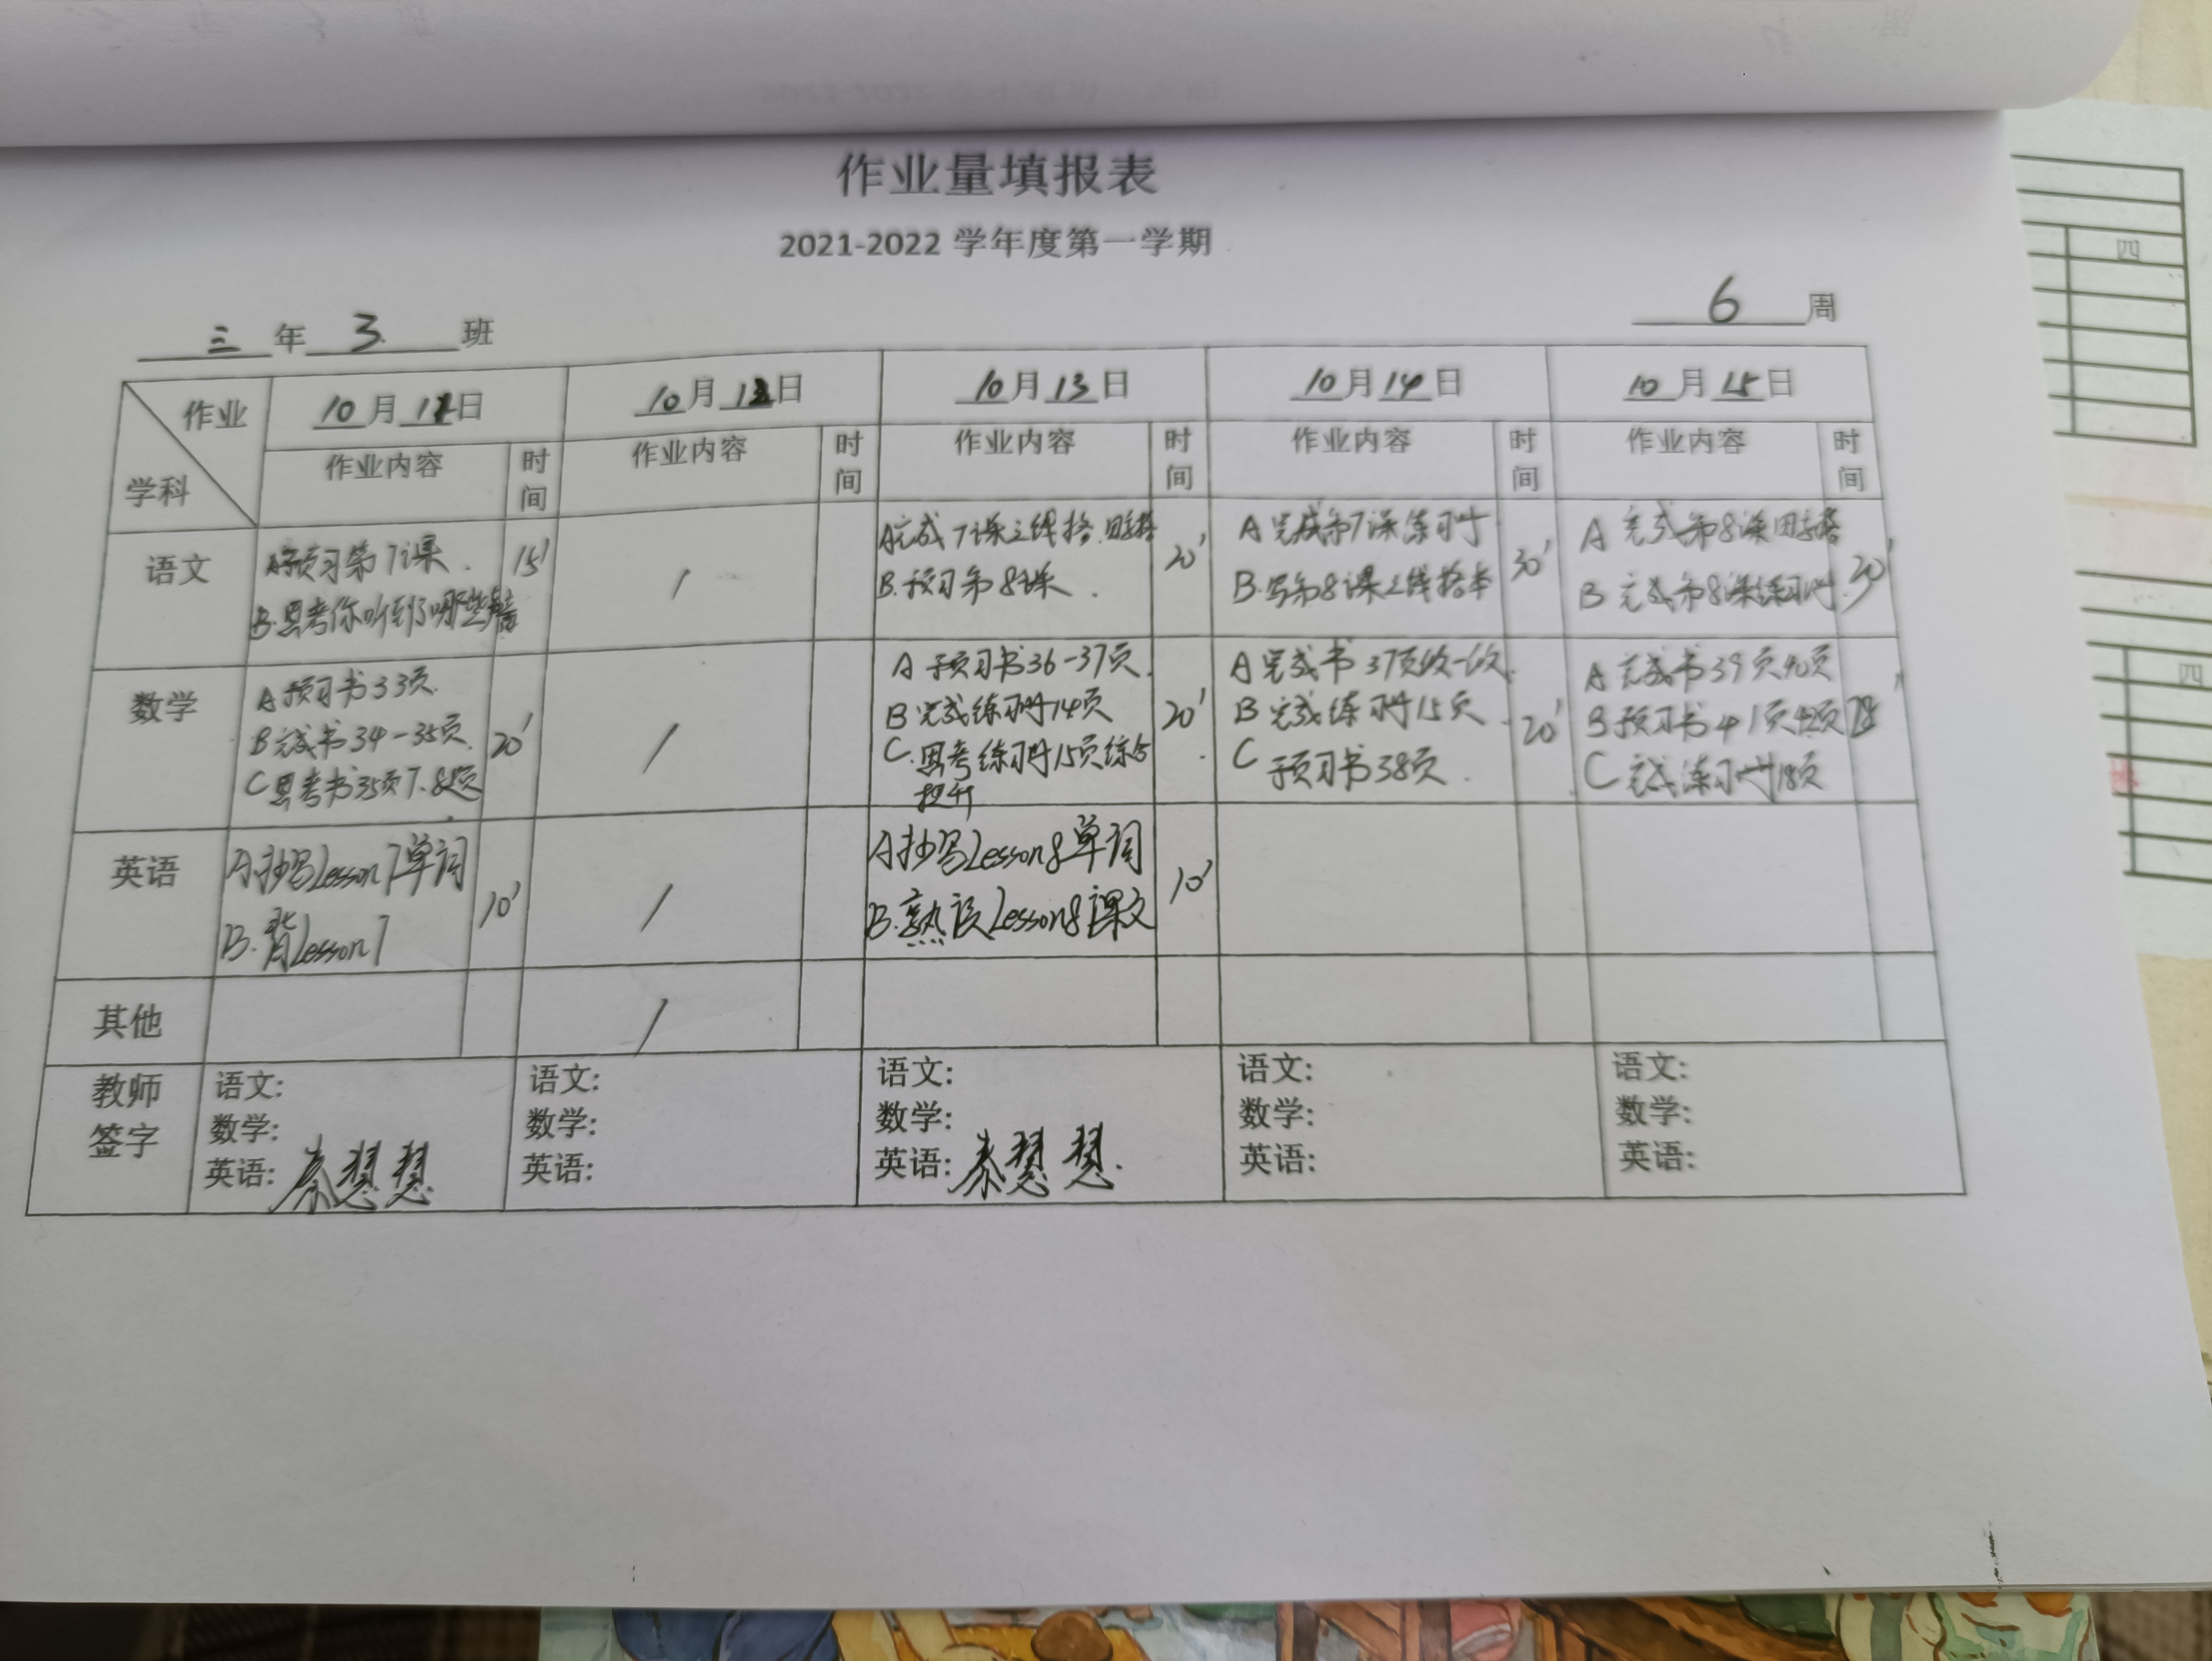 作业量填报表
2021-2022 学年度第一学期
三 年 3 班
6 周
作业
学科
10 月 11 日
10 月 12 日
10 月 13 日
10 月 14 日
10 月 15 日
作业内容 时间
作业内容 时间
作业内容 时间
作业内容 时间
作业内容 时间
语文
A预习第7课.
B.思考你听到了哪些声音
15'
/
A完成7课三线格.田字格
B.预习第8课.
20'
A 完成第7课练习册
B.写第8课三线格本
30'
A 完成第8课田字格
B 完成第8课练习册.
数学
A 预习书33页.
B完成书34-35页.
C思考书35页7.8题
20'
/
A 预习书36-37页.
B 完成练习册14页
C.思考练习册15页综合
提升
20'
A 完成书37页做一做.
B 完成练习册15页
C 预习书38页.
20'
A 完成书39页40页
B预习书41页42页
C 完成练习册18页
英语
A.抄写Lesson7单词
B.背Lesson7
10'
/
A抄写Lesson8单词
B.熟读Lesson8课文
10'
其他
/
教师
签字
语文:
数学:
英语: 秦慧慧
语文:
数学:
英语:
语文:
数学:
英语: 秦慧慧.
语文:
数学:
英语:
语文:
数学:
英语:
四
四